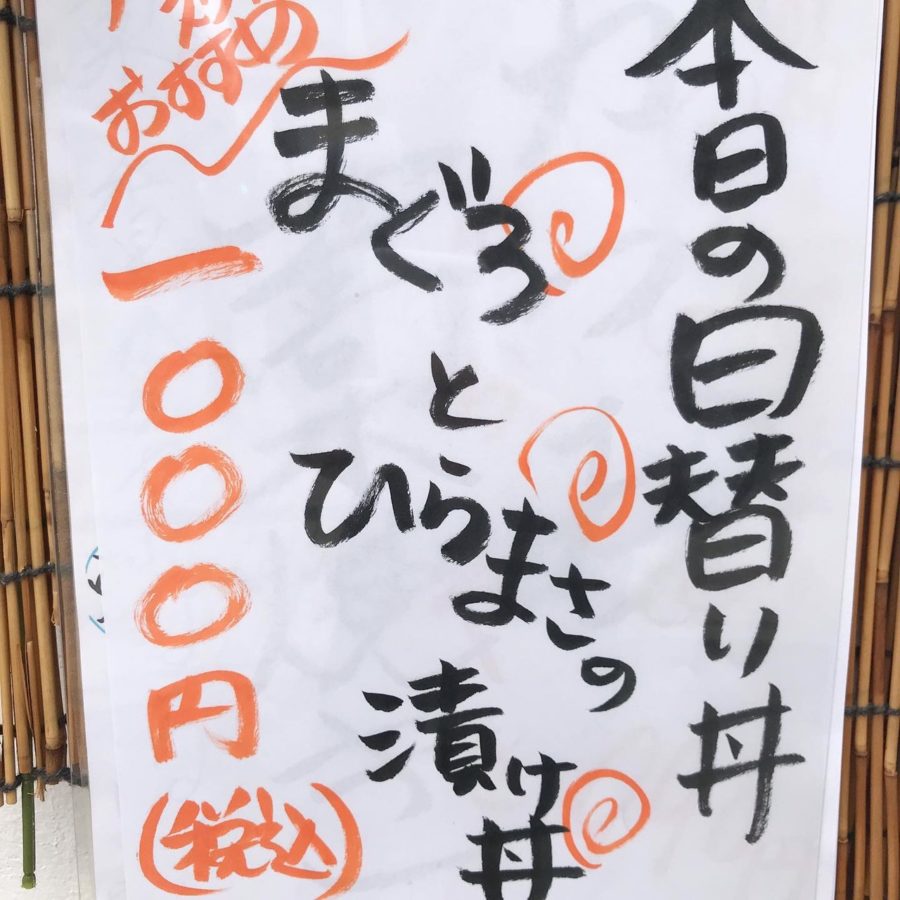 本日の日替り丼
まぐろ
と
ひらまさの
漬け丼
おすすめ
一〇〇〇円
(税込)